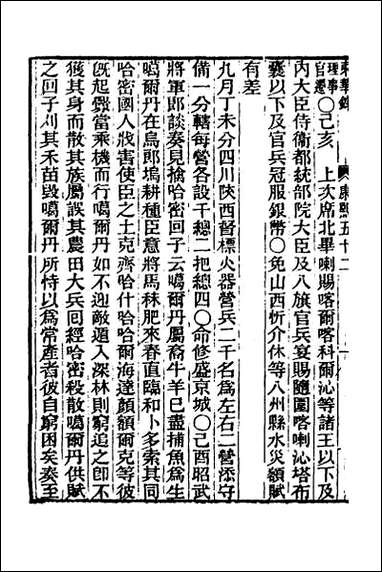 東華錄 康熙五十二
理事官遷○己亥　上次席北畢喇賜喀爾喀科爾沁等諸王以下及
內大臣侍衛都統部院大臣及八旗官兵宴賜隨圍喀喇沁塔布
囊以下及官兵冠服銀幣○免山西忻介休等八州縣水災額賦
有差
九月丁未分四川陝西督標火器營兵二千名爲左右二營添守
備一分轄每營各設千總二把總四○命修盛京城○己酉昭武
將軍郎談奏見擒哈密回子云噶爾丹屬裔牛羊已盡捕魚爲生
噶爾丹在烏郎塢耕種臣意將馬秣肥來春直臨和卜多索其同
哈密國人戕害使臣之土克齊哈什哈哈爾海達顏額爾克等彼
旣起釁當乘機而行噶爾丹如不迎敵遁入深林則窮追之卽不
獲其身而散其族屬誤其農田大兵囘經哈密殺散噶爾丹供賦
之回子刈其禾苗毀噶爾丹所恃以爲常產者彼自窮困矣奏至